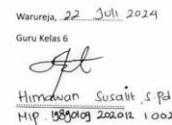 Warureja, 22 Juli 2024
Guru Kelas 6
Himawan Susalit, S.Pd
NIP. 19890109 202012 1 002